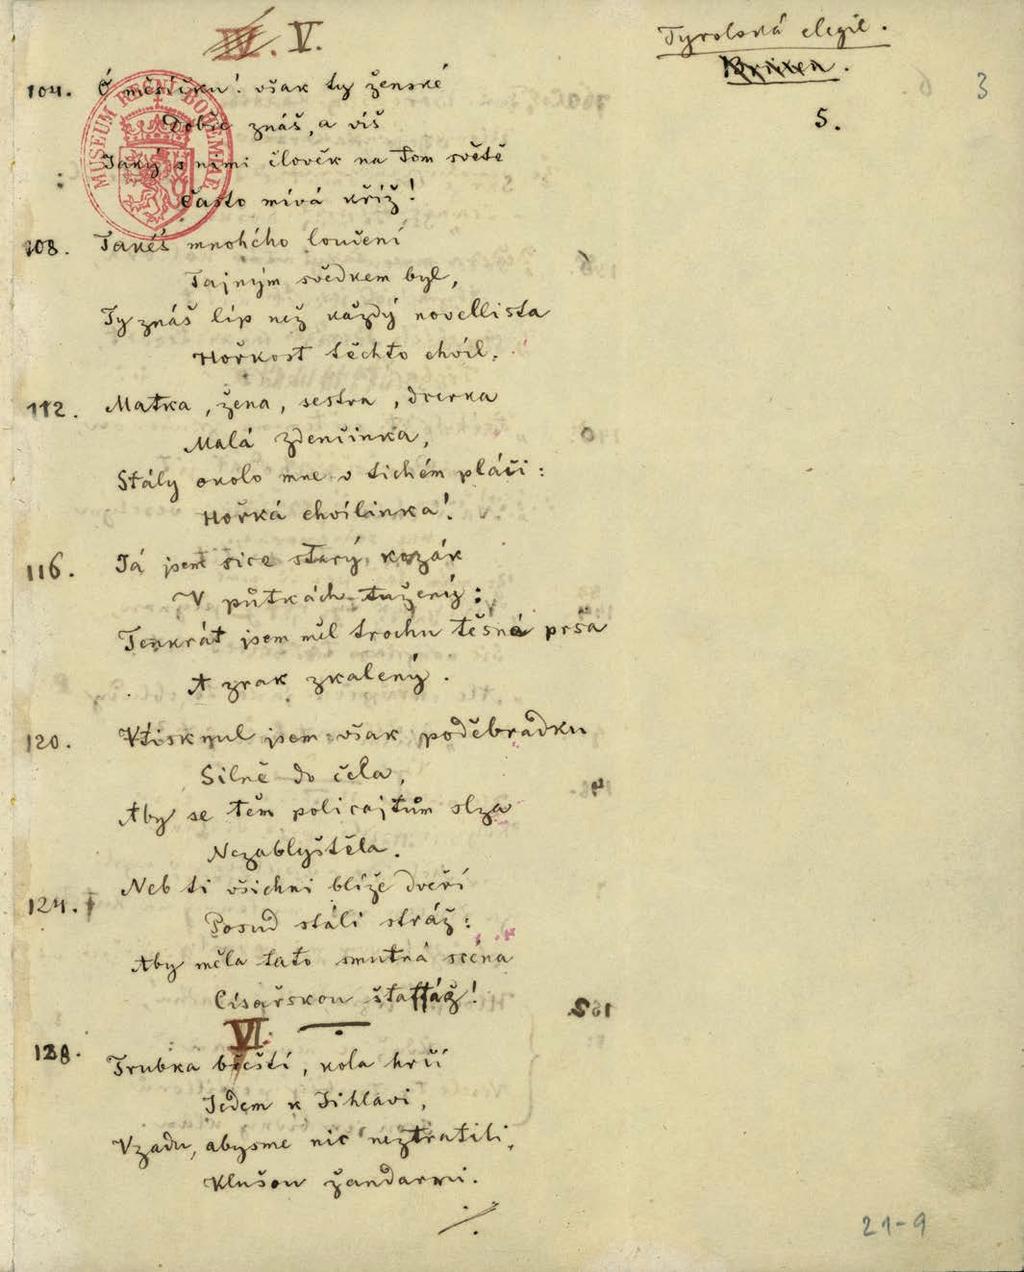 V.
Tyrolská elegie.
Brixen.
3
5.
104. Ó měsíčku! však ty ženské
Dobře znáš, a víš
Jaký s nimi člověk na tom světě
Často mívá kříž!
MUSEUM REGNI BOHEMIAE
108. Takéš mnohého loučení
Tajným svědkem byl,
Ty znáš líp než každý novellista
Hořkost těchto chvil.
112. Matka, žena, sestra, dcerka
Malá Zdenčinka,
Stály okolo mne v tichém pláči:
Hořká chvilinka!
116. Já jsem sice starý kozák
V půtkách tužený:
Tenkrát jsem měl trochu těsná prsa
A zrak zkalený.
120. Vtisknul jsem však poděbradku
Silně do čela,
Aby se těm policajtům slza
Nezablyštěla.
124. Neb ti všichni blíže dveří
Posud stáli stráž:
Aby měla tato smutná scéna
Císařskou štaffáž!
VI.
128. Trubka břeští, kola hrčí
Jedem k Jihlavi,
Vzadu, abysme nic neztratili,
Klušou žandarmi.
./.
21-9